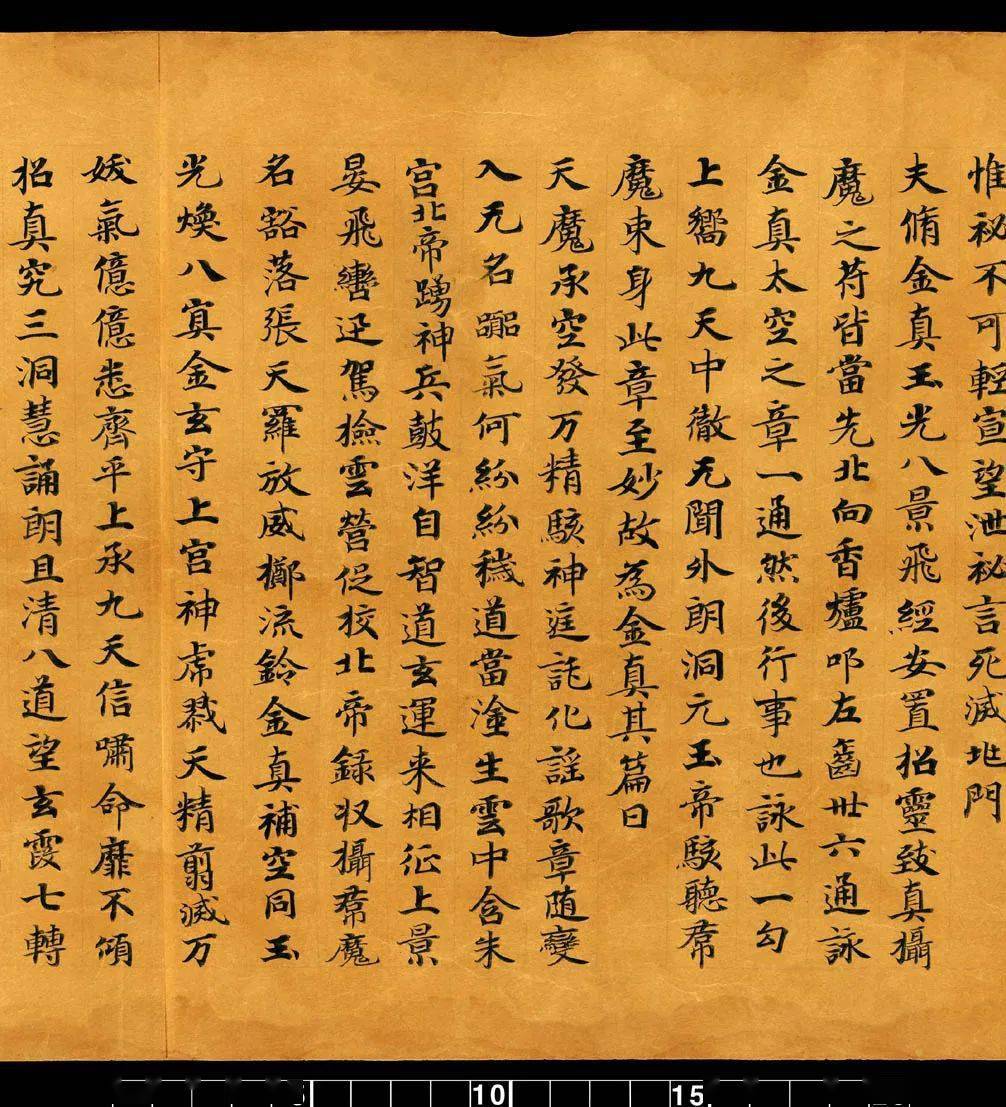 惟祕不可輕宣望泄祕言死滅地門
夫脩金真玉光八景飛經安置招靈致真攝
魔之苻皆當先北向香爐叩左齒卅六通詠
金真太空之章一通然後行事也詠此一句
上嚮九天中徹无聞外朗洞元玉帝駭聽羣
魔束身此章至妙故為金真其篇曰
天魔承空發万精駭神庭託化謡歌章随變
入无名 氣何紛紛穢道當塗生雲中含朱
宮北帝踴神兵鼓洋自智道玄運来相征上景
晏飛轡迅駕撿雲營促校北帝錄収攝羣魔
名豁落張天羅放威擲流鈴金真補空同玉
光煥八寘金玄守上宮神虎戮天精翦滅万
妖氣億億悉齊平上承九天信嘯命靡不傾
招真究三洞慧誦朗且清八道望玄霞七轉
5
10
15